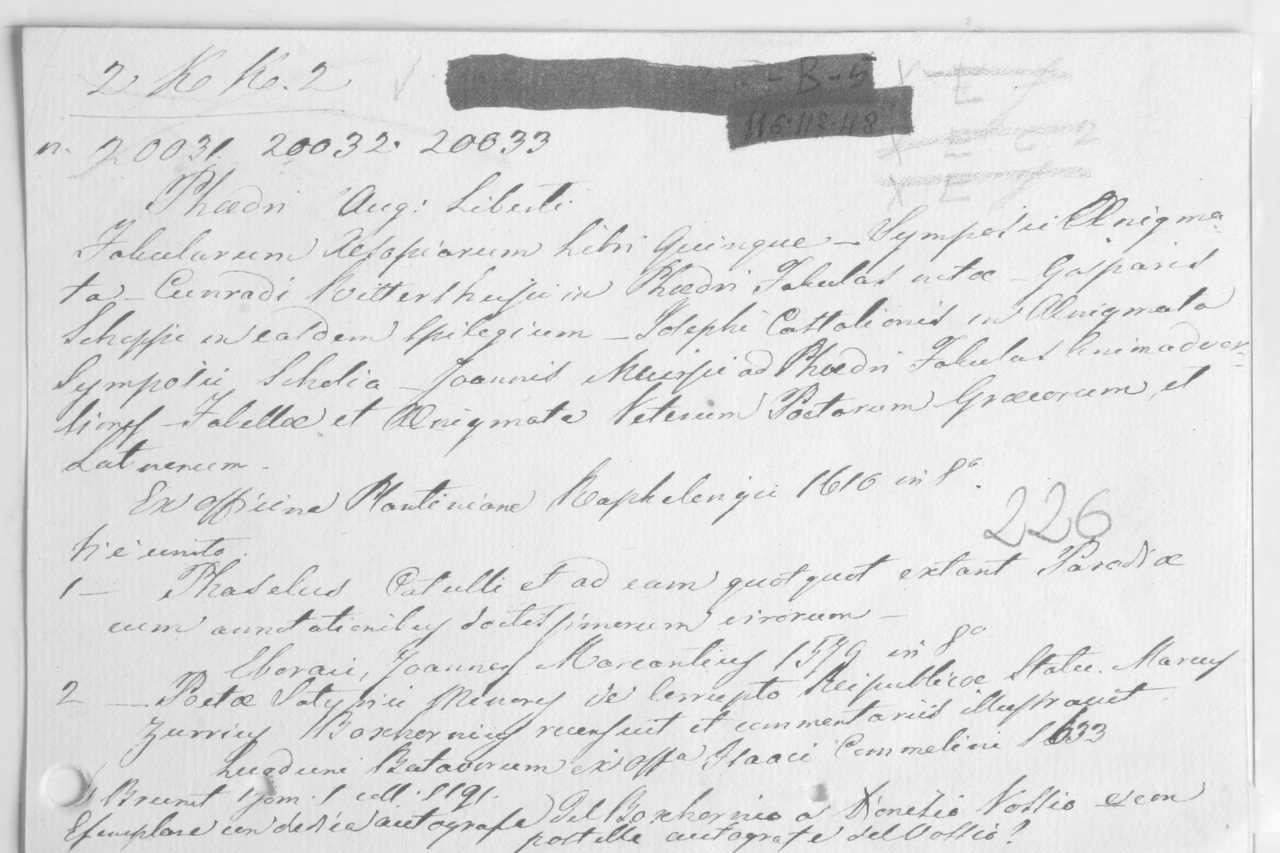 2 K K. 2
- B - 5
116.112.118
n. 20031. 20032. 20033
226
Phædri Aug: Liberti
Fabularum Aesopiarum Libri Quinque - Symposii Ænigma-
ta - Cunradi Rittershusii in Phædri Fabulas notæ - Gasparis
Schoppii in easdem spilegium - Josephi Castalionis in Ænigmata
Symposii Scholia - Joannis Meursii ad Phædri Fabulas Animadver-
siones - Fabellæ et Ænigmata Veterum Poetarum Græcorum, et
Latinorum.
Ex officina Plantiniana Raphelengii 1610 in 8º.
Vi è unito.
1 - Phaselus Catulli et ad eam quotquot extant Parodiæ
cum annotationibus doctissimorum virorum -
Eboraci, Joannes Marcantius 1579 in 8º
2 - Poetæ Satyrici Minores de Corrupto Reipublicæ Statu. Marcus
Zuerius Boxhornius recensuit et commentariis illustravit
Lugduni Batavorum ex offª Isaaci Commelini 1633
Brunet Tom. 1 coll. 1191.
Esemplare con dedica autografa del Boxhornio a Dionisio Vossio e con
postille autografe del Vossio?